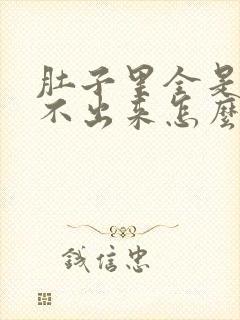 肚子里全是
不出来怎麽
钱信忠